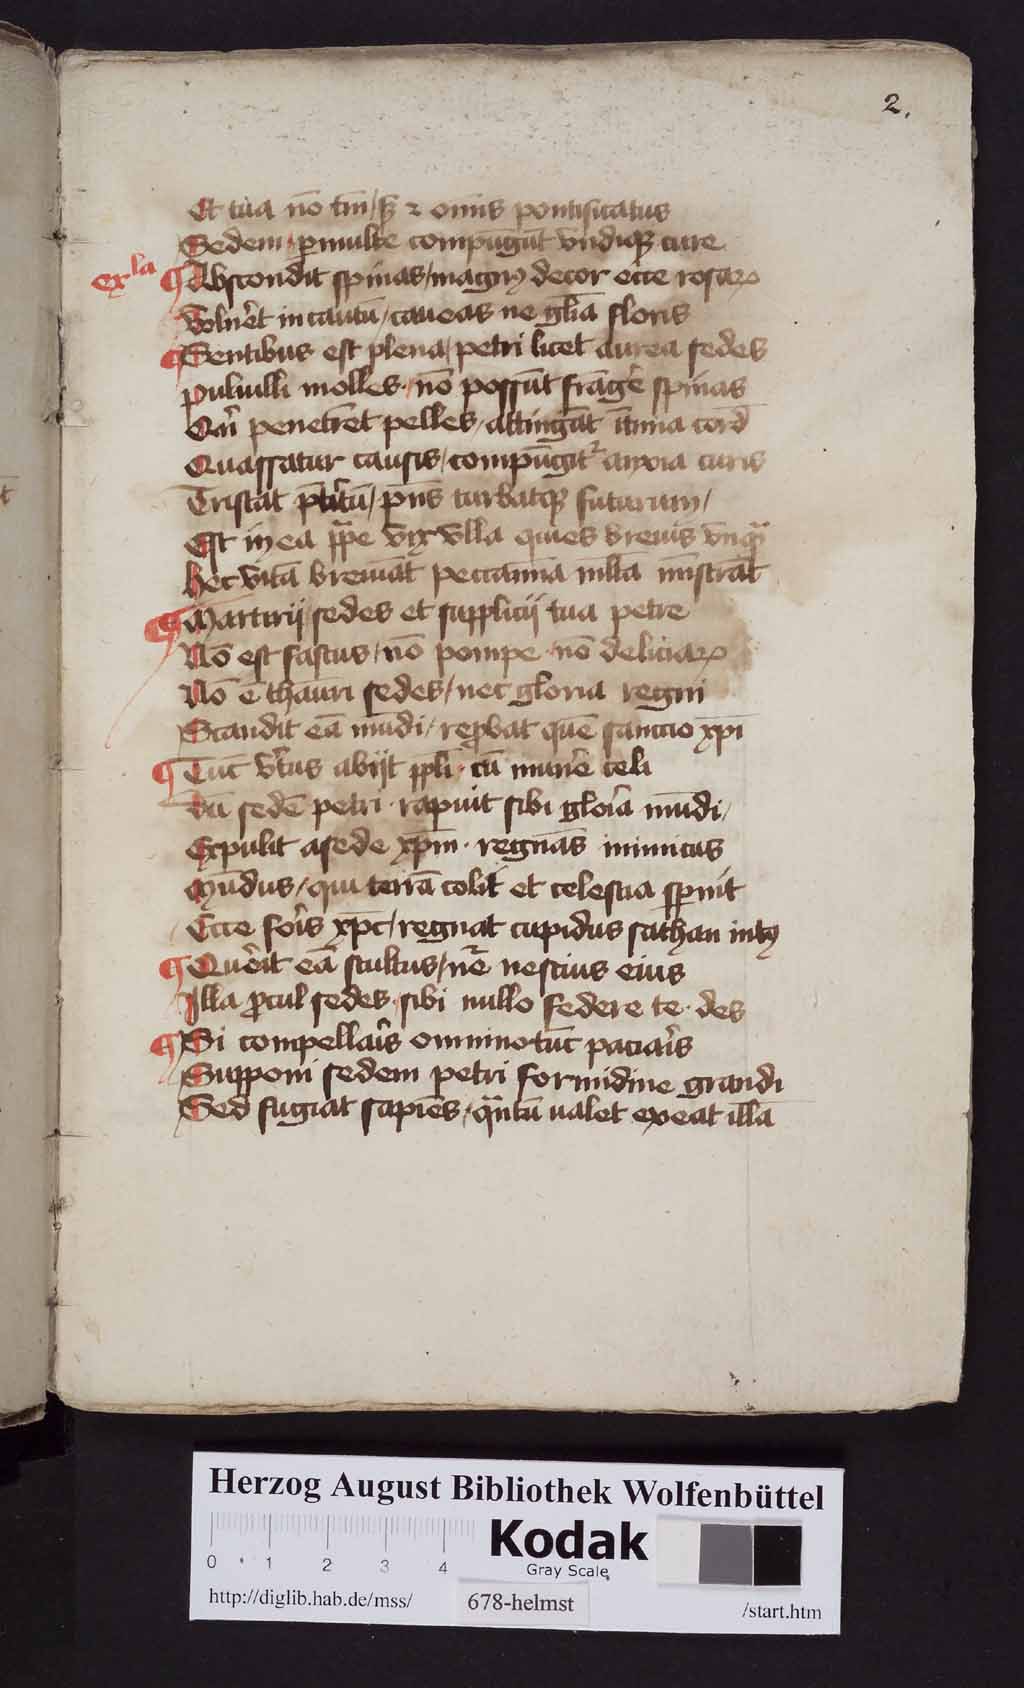 2.
Et tua nō tm̄ / sꝫ ⁊ om̄is pontificatus
Sedem · ꝑmulte compūgūt vndiqꝫ cure
exla ¶ Abscondit spinas / magnꝰ decor ecce rosaꝝ
Vuln̄et incautū / caueas ne gl̄ia floris
¶ Sentibus est plena / petri licet aurea sedes
puluilli molles · nō possūt frāge͛ spinas
penetrēt pelles / attingāt ītima cord̄
Quassatur causis / compūgit᷑ anxia curis
Tristat p̄t̄itū / pn̄s turbatqꝫ futurum /
Est in ea vix vlla quies breuis vnqᷓ
hec vitā breuiāt peccamina ml̄ta mīstrāt
¶ Martirij sedes et supplicij tua petre
Nō est fastus / nō pompe nō deliciaꝝ
Nō ē thauri sedes / nec gloria regni
Scandit eā mūdi / reꝓbat quē sanctio xp̄i
¶ Tūc v͛tus abijt ppl̄i · cū mune͛ celi
Dū sedē petri · rapuit sibi gloīa mūdi /
Expulit a sede xp̄m · regnās inimicus
Mūdus / qui terrā colit et celestia spernit
Ecce foīs xp̄c / regnat cupidus sathan intꝰ
¶ Que͛it eā stultus / nescius eius
Illa ꝓcul sedes · sibi nullo federe te · des
¶ Si compellaīs omnino tūc paciaīs
Supponi sedem petri formidine grandi
Sed fugiat sapiēs / qᷓntū ualet exeat illā
Herzog August Bibliothek Wolfenbüttel
0 1 2 3 4
Kodak
Gray Scale
http://diglib.hab.de/mss/ 678-helmst /start.htm